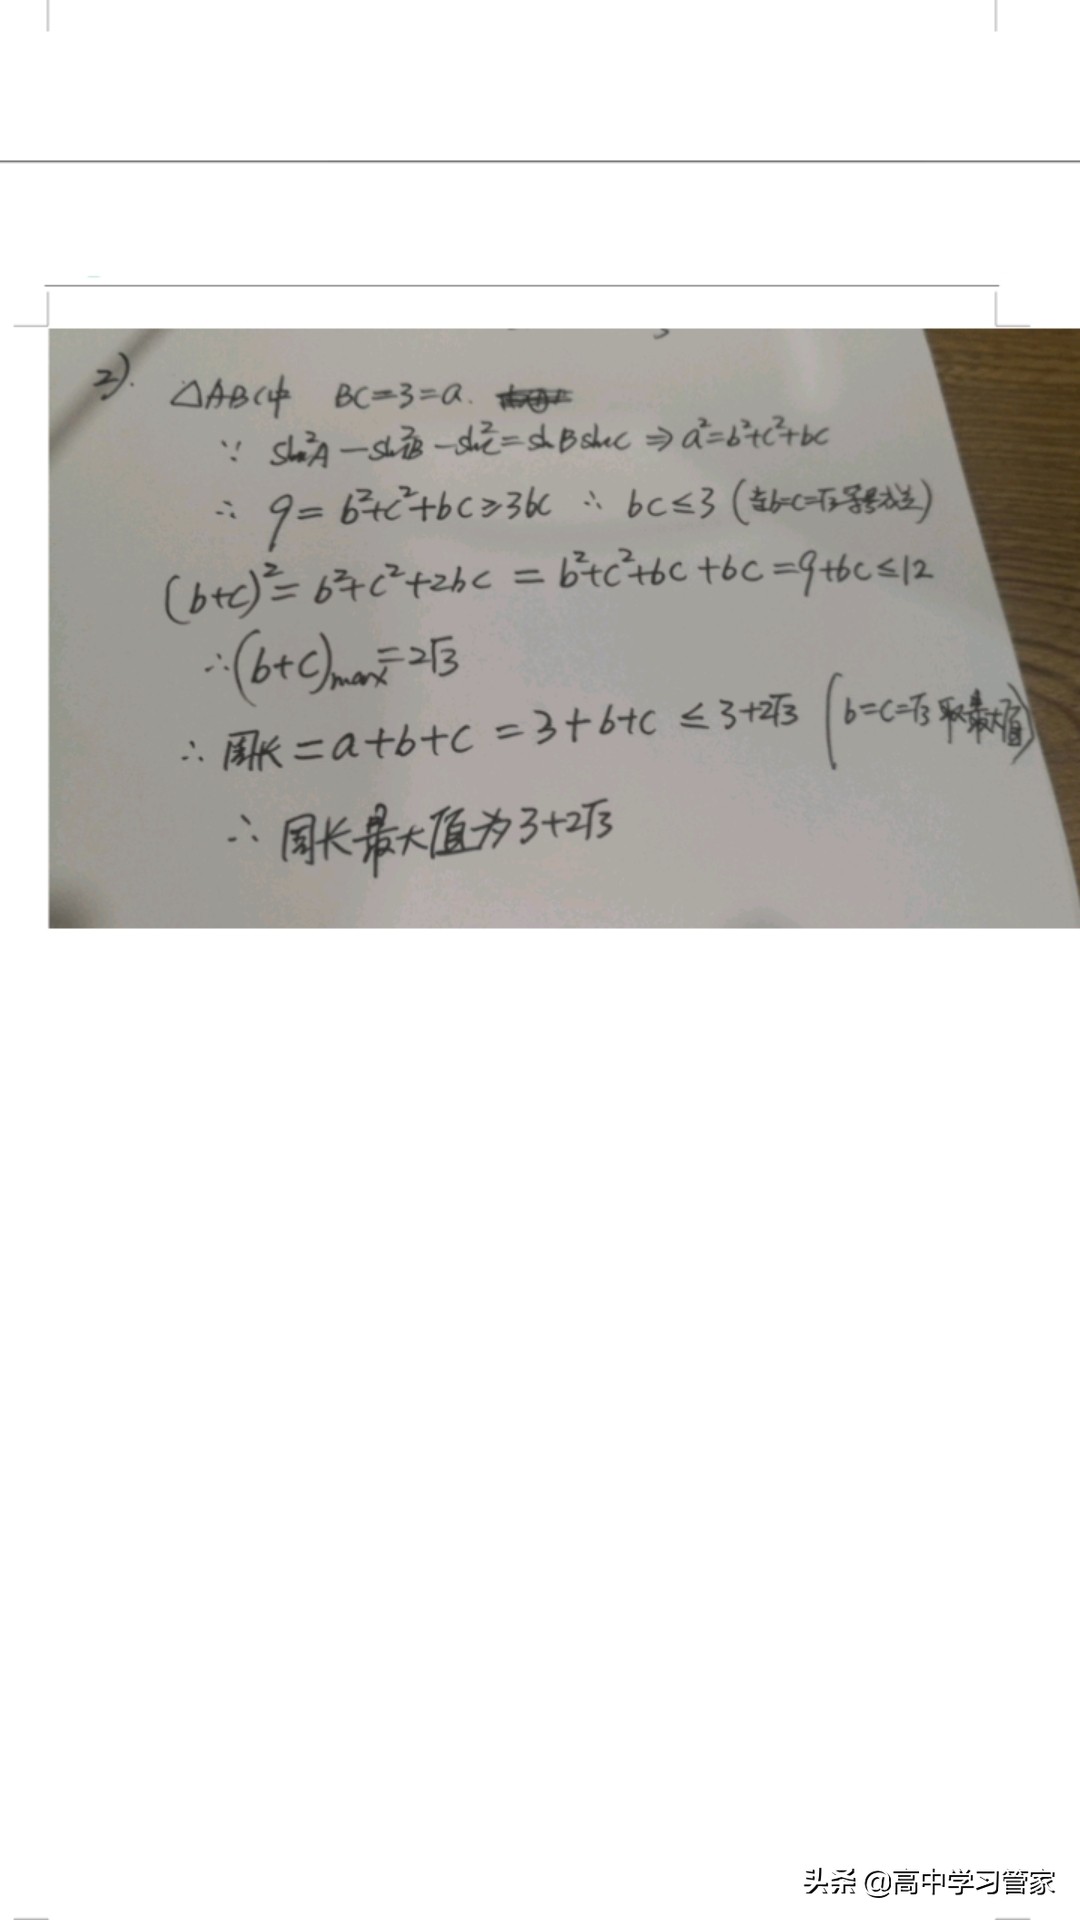 2).
△ABC中 BC=3=a.
∵ sin²A-sin²B-sin²C=sinBsinC ⇒ a²=b²+c²+bc
∴ 9=b²+c²+bc≥3bc ∴ bc≤3 (当b=c=√3等号成立)
(b+c)²=b²+c²+2bc=b²+c²+bc+bc=9+bc≤12
∴(b+c)max=2√3
∴ 周长=a+b+c=3+b+c≤3+2√3 (b=c=√3取最大值)
∴ 周长最大值为3+2√3
头条 @高中学习管家